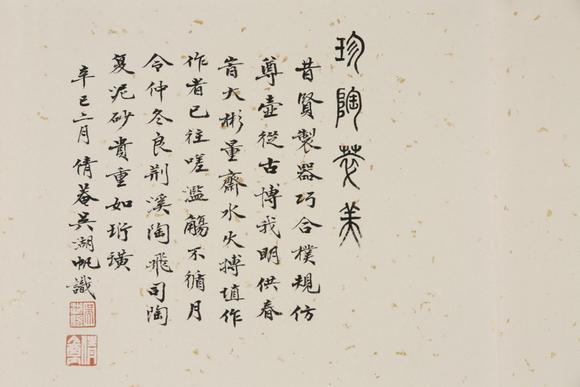 珍陶萃美
昔賢製器巧合樸規仿
尊壺從古博我明供春
旹大彬量齋水火摶埴作
作者已往嗟濫觴不循月
令仲冬良荊溪陶飛司陶
复泥砂貴重如珩璜
辛巳二月倩菴吳湖帆識